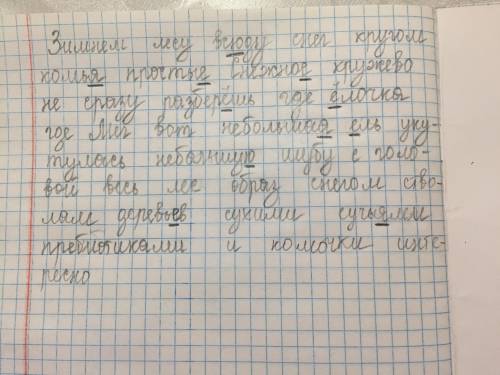 Зимнем лесу всюду снег кругом
комья простые снежное кружево
не сразу разберёшь где ёлочка
где Мег вот небольшая ель уку-
тулась небошшую шубу с голо-
вой весь лес образ снегом ство-
лами деревьев сухими сучьями
пребистиками и колючки инте-
ресно